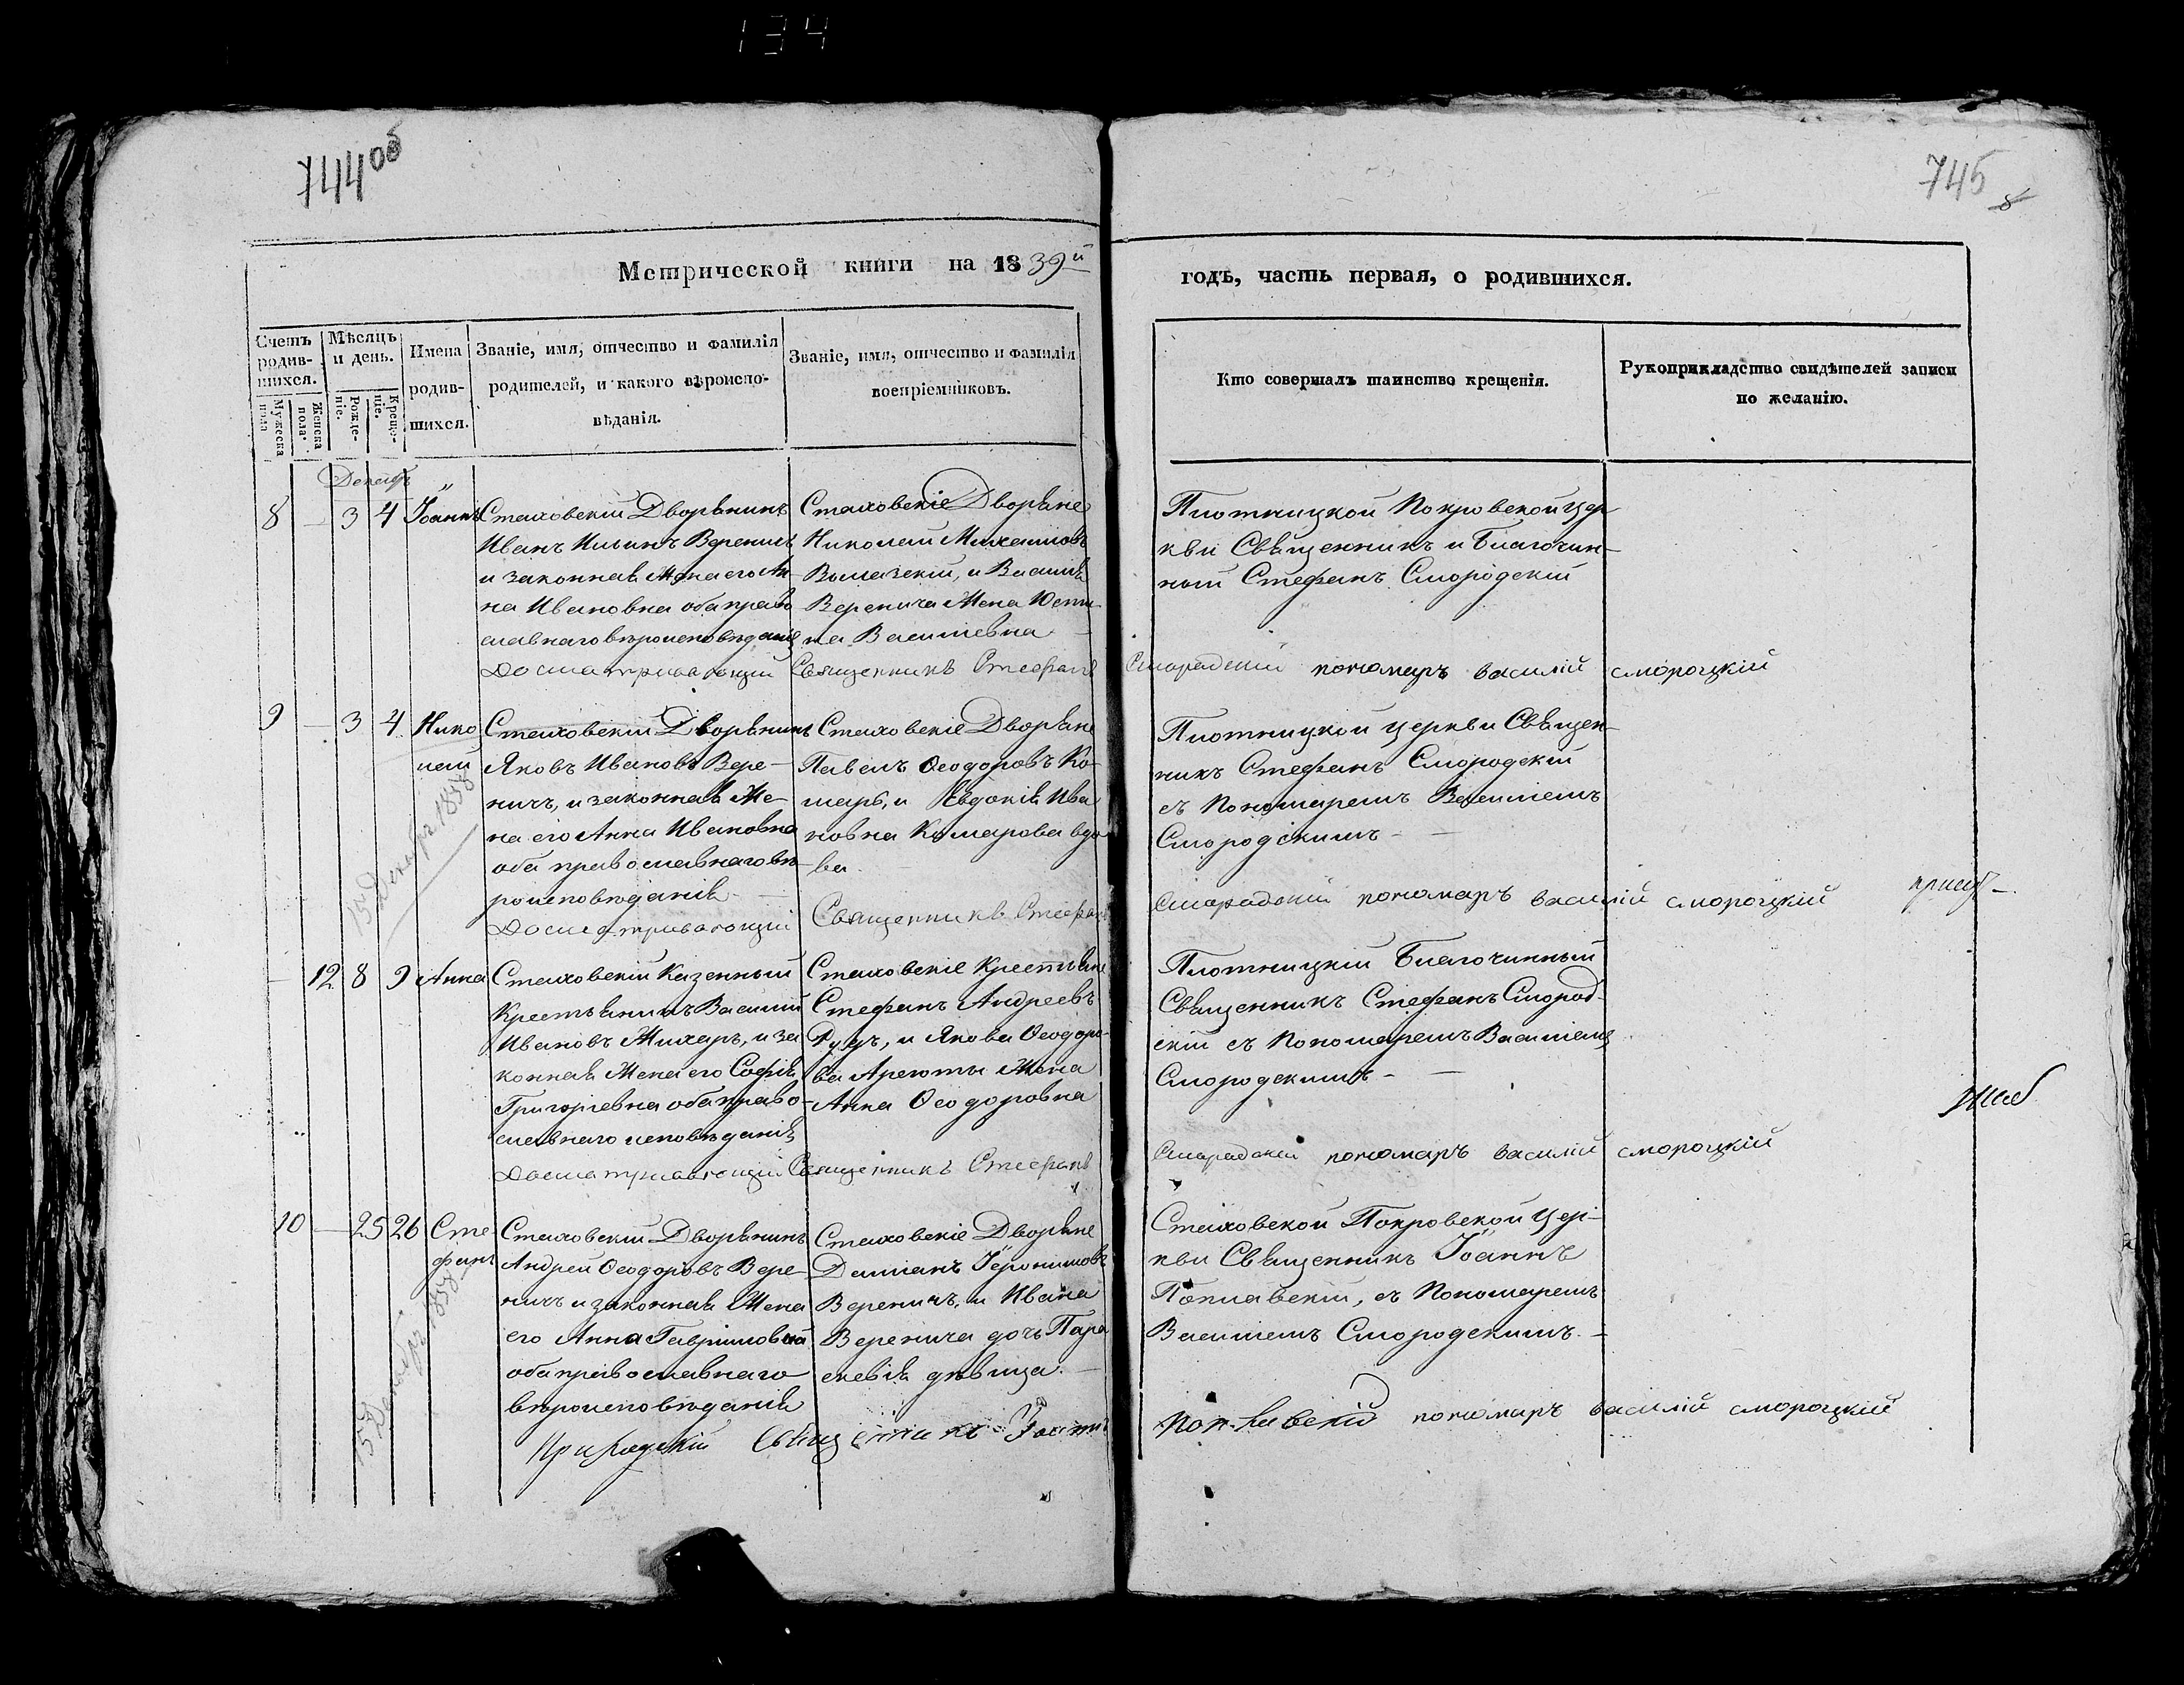 134
744об
745
8
Метрической книги на 1839й
годъ, часть первая, о родившихся.
Счетъ родив-шихся.
Мужеска пола
Женска пола.
Мѣсяцъ и день.
Рожде-ніе.
Креще-ніе.
Имена родив-шихся.
Званіе, имя, отчество и фамилія
родителей, и какого вѣроиспо-
вѣданія.
Званіе, имя, отчество и фамилія
воспріемниковъ.
Кто совершалъ таинство крещенія.
Рукоприкладство свидѣтелей записи
по желанію.
Декабр
8 — 3 4 Іоаннъ
Стаховскій Дворянинъ
Иванъ Ильинъ Вереничъ
и законная Жена его Ан-
на Ивановна оба право
славнаго вѣроисповѣданія
Стаховскіе Дворяне
Николай Михаиловъ
и Василія
Веренича Жена Юсти-
на Васильевна
Плотницкой Покровской цер
кви Священникъ и Благочин-
ный Стефанъ Смородскій
Досматривающій Священникъ Стефанъ Смородскій пономаръ василій смороцкій
9 — 3 4 Нико
лай
Стаховскій Дворянинъ
Яковъ Ивановъ Вере-
ничъ, и законная Же-
на его Анна Ивановна
оба православнаго вѣ-
роисповѣданія
Стаховскіе Дворяне
Павелъ Ѳеодоровъ Ко-
маръ, и Евдокія Ива
новна Комарова вдо-
ва.
Плотницкой церкви Священ-
никъ Стефанъ Смородскій
съ Пономаремъ Васильемъ
Смородскимъ —
Декабр 1838
Досматривающій Священникъ Стефанъ Смородскій пономаръ василій смороцкій
— 12 8 9 Анна
Стаховскій Казенный
Крестьянинъ Василій
Ивановъ Жихаръ, и за
конная Жена его Софія
Григорьевна оба право-
славнаго исповѣданія
Стаховскіе Крестьяне
Стефанъ Андреевъ
и Якова Ѳеодоро-
ва Жена
Анна Ѳеодоровна
Плотницкій Благочинный
Священникъ Стефанъ Смород-
скій съ Пономаремъ Васильемъ
Смородскимъ —
Досматривающій Священникъ Стефанъ Смородскій пономаръ василій смороцкій
10 — 25 26 Сте
фанъ
Стаховскій Дворянинъ
Андрей Ѳеодоровъ Вере-
ничъ и законная Жена
его Анна Гавриловна
оба православнаго
вѣроисповѣданія
Стаховскіе Дворяне
Даміанъ Іеронимовъ
Вереничъ, и Ивана
Веренича дочь Пара
скевія дѣвица. —
Стаховской Покровской Цер-
кви Священникъ Іоаннъ
Поплавскій, съ Пономаремъ
Васильемъ Смородскимъ. —
Декабр 1838
Приходскій Священникъ Іоаннъ Поплавскій пономаръ василій смороцкій